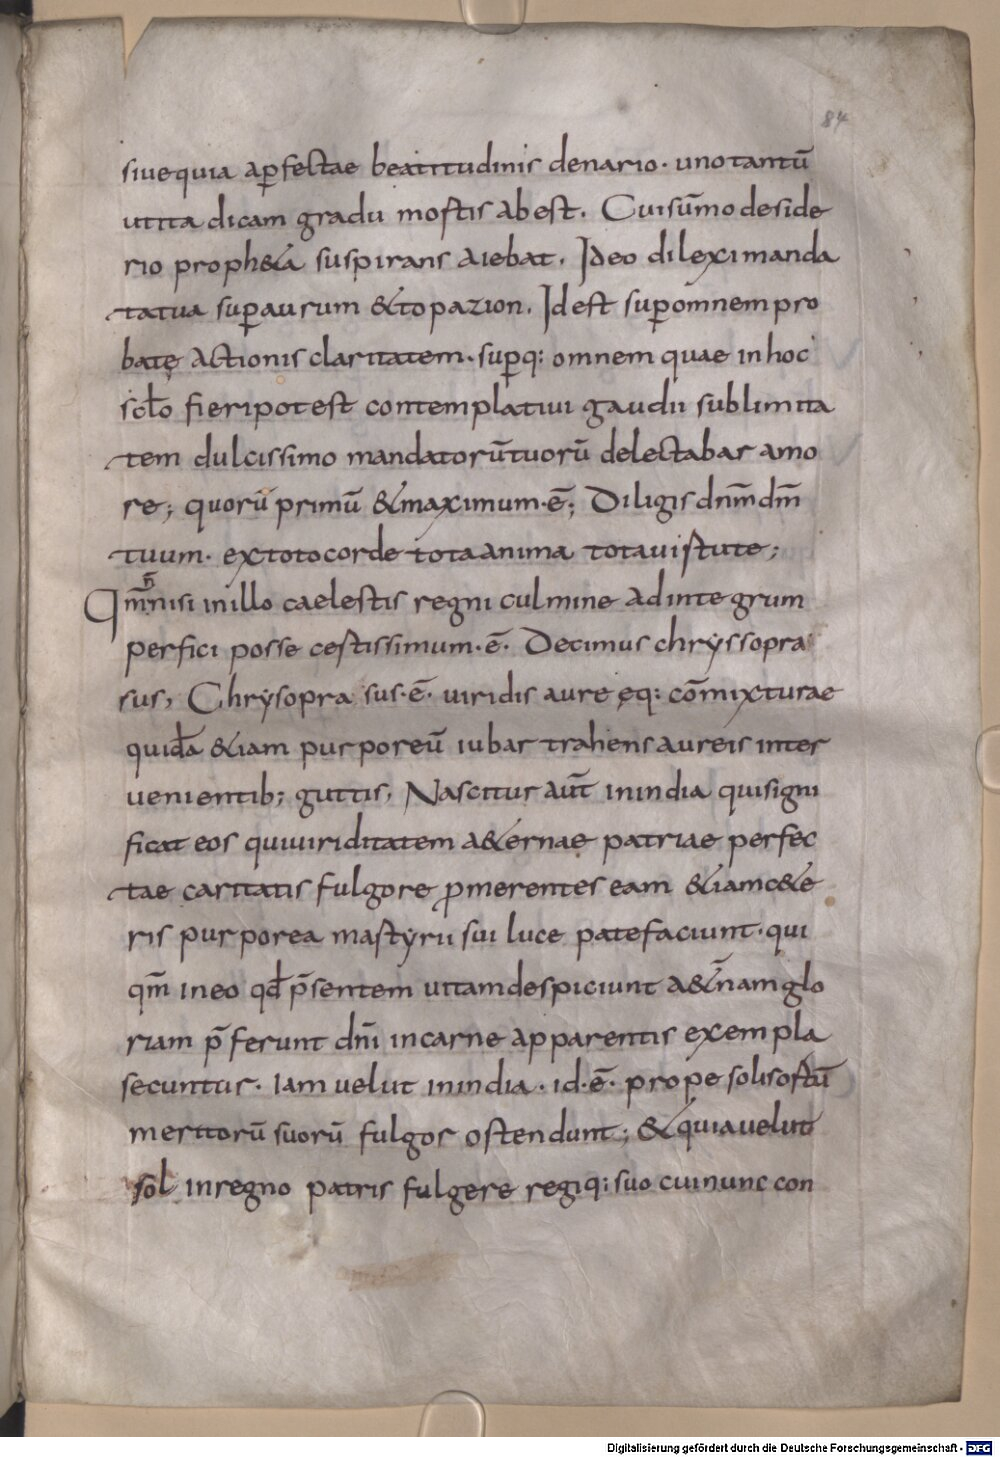 84
siue quia aꝑfectae beatitudinis denario· uno tantū
utita dicam gradu mortis abest. Cui sūmo deside
rio proph&a suspirans aiebat. Ideo dilexi manda
ta tua suꝑ aurum &topazion. Id est suꝑ omnem pro
batę actionis claritatem· suꝑq: omnem quae in hoc
sc̄lo fieri potest contemplatiui gaudii sublimita
tem dulcissimo mandatorū tuorū delectabar amo
re; quorū primū & maximum·ē; Diligis dn̄m dm̄
tuum· ex toto corde tota anima tota uirtute;
Qm̄ nisi in illo caelestis regni culmine ad integrum
perfici posse certissimum·ē· Decimus chrẏssopra
sus, Chrẏsopra sus·ē· uiridis aure ęq: com̄ixturae
quidā &iam purporeū iubar trahens aureis inter
uenientib; guttis, Nascitur aūt in india qui signi
ficat eos qui uiriditatem a&ernae patriae perfec
tae caritatis fulgore ꝓmerentes eam &iam c&e
ris purporea martẏrii sui luce patefaciunt· qui
qm̄ in eo qd̄ p̄sentem uitam despiciunt a&n̄am glo
riam p̄ferunt dn̄i in carne apparentis exempla
secuntur· Iam uelut in india· id·ē· prope solis ortū
meritorū suorū fulgor ostendunt; & quia uelut
sol in regno patris fulgere regiq: suo cui nunc con
Digitalisierung gefördert durch die Deutsche Forschungsgemeinschaft - DFG